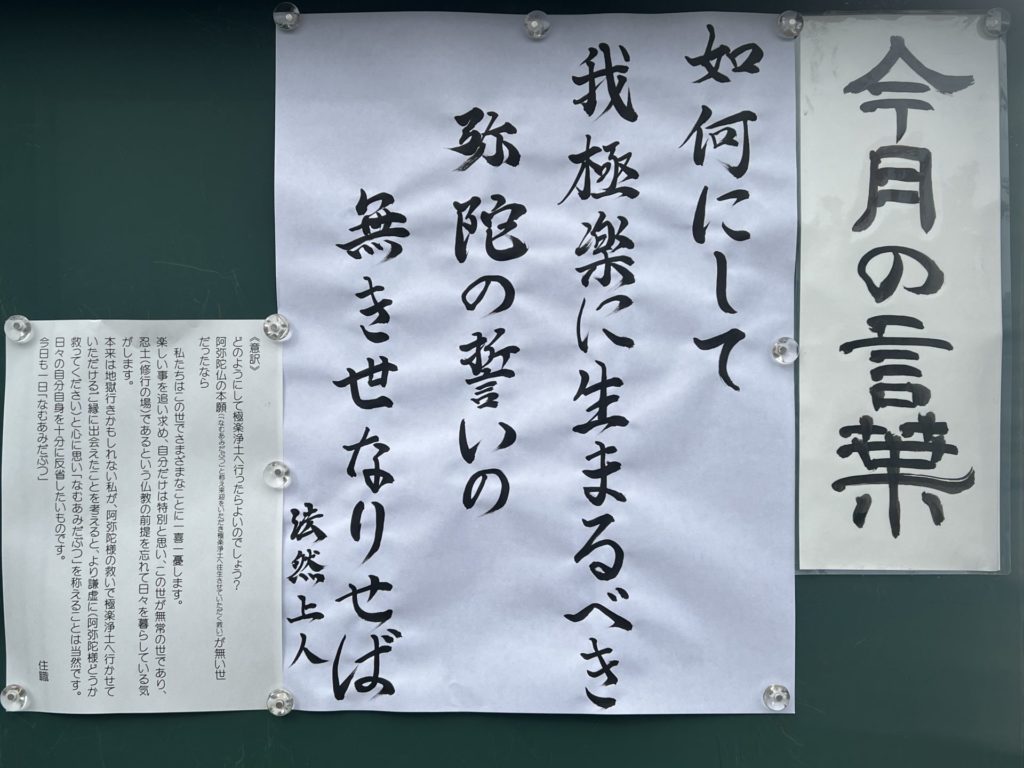 今月の言葉
如何にして
我極楽に生まるべき
弥陀の誓いの
無き世なりせば
法然上人
《意訳》
どのようにして極楽浄土へ行ったらよいのでしょう？
阿弥陀仏の本願(「なむあみだぶつ」と称え来迎をいただき極楽浄土へ往生させていただく救い)が無い世
だったなら
私たちはこの世でさまざまなことに一喜一憂します。
楽しい事を追い求め、自分だけは特別と思い、この世が無常の世であり、
忍土(修行の場)であるという仏教の前提を忘れて日々を暮らしている気
がします。
本来は地獄行きかもしれない私が、阿弥陀様の救いで極楽浄土へ行かせて
いただけるご縁に出会えたことを考えると、より謙虚に(阿弥陀様どうか
救ってください)と心に思い「なむあみだぶつ」を称えることは当然です。
日々の自分自身を十分に反省したいものです。
今日も一日「なむあみだぶつ」
住職